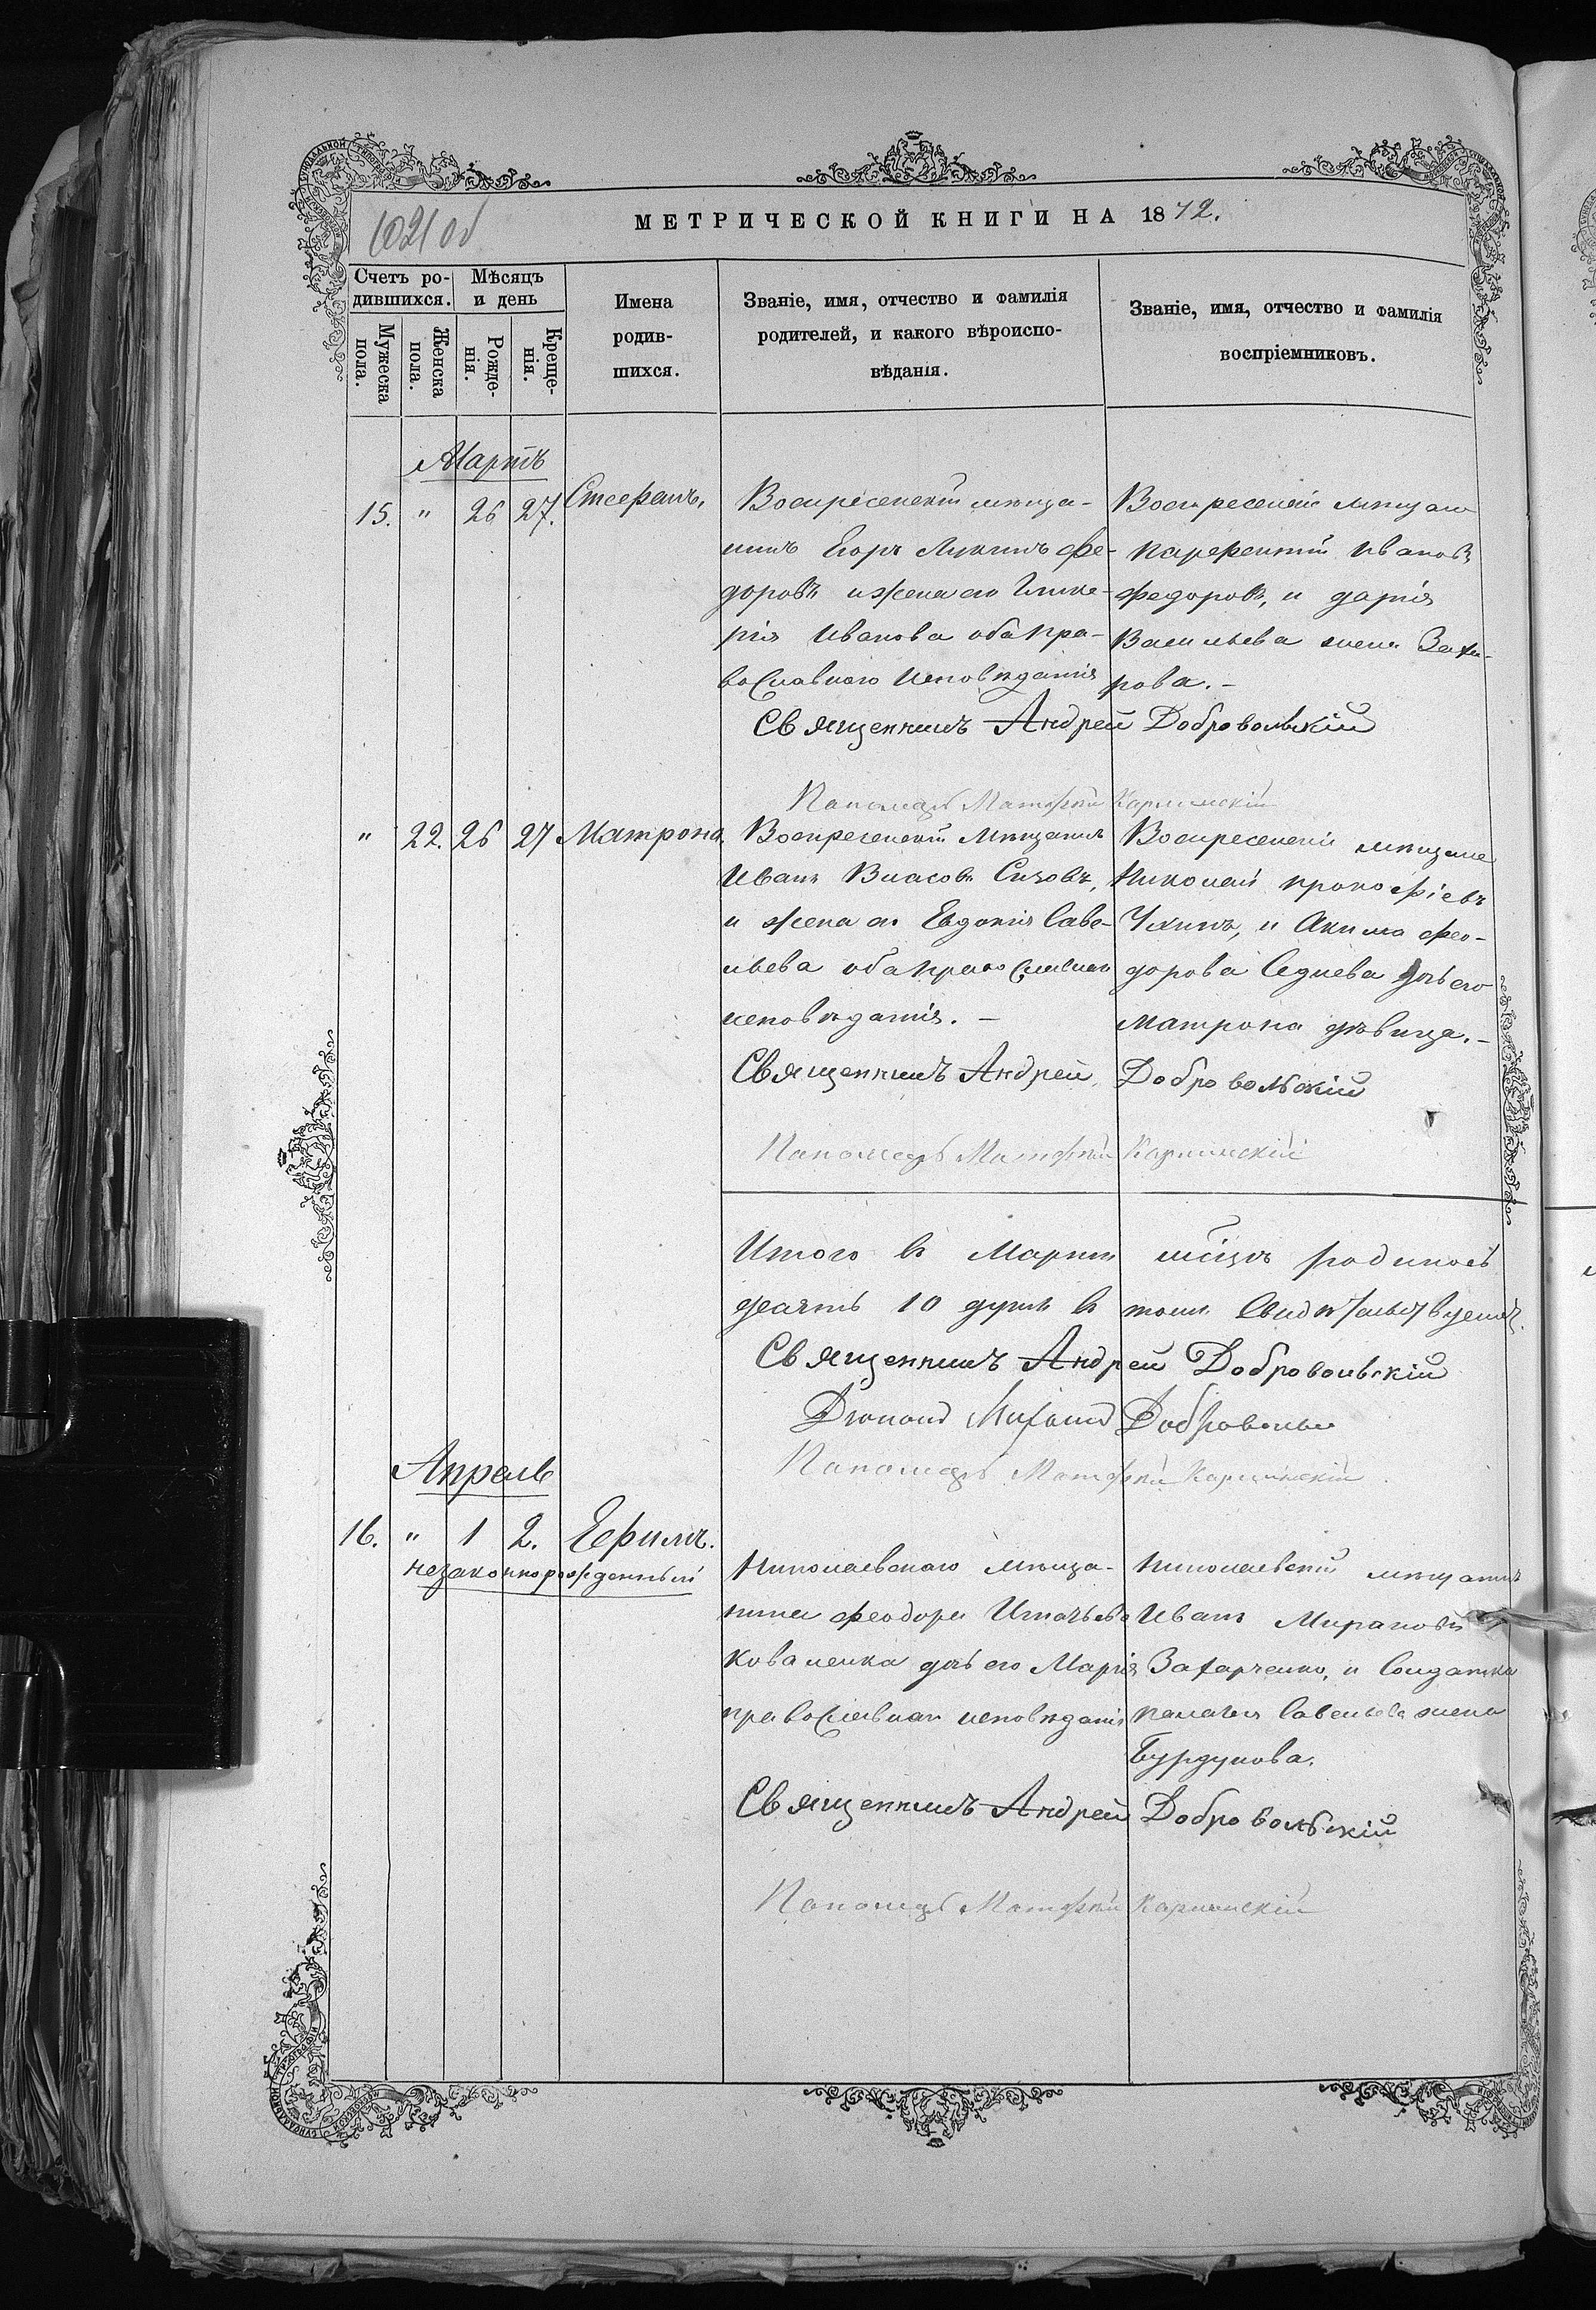 1021 об
МЕТРИЧЕСКОЙ КНИГИ НА 1872.
Счетъ ро-
дившихся.
Мѣсяцъ
и день
Мужеска
пола.
Женска
пола.
Рожде-
нія.
Креще-
нія.
Имена
родив-
шихся.
Званіе, имя, отчество и фамилія
родителей, и какого вѣроиспо-
вѣданія.
Званіе, имя, отчество и фамилія
воспріемниковъ.
Мартъ
15. " 26 27. Стефанъ,
Воскресенскій мѣща-
нинъ Егоръ Лукинъ Фе-
доровъ и жена его Глике-
рія Иванова оба пра-
вославнаго исповѣданія
Воскресенскіе мещане
Парфентій Ивановъ
Федоровъ, и Дарія
Васильева жена Заха-
рова.-
Священникъ Андрей Добровольскій
Паномарь Матфей
" 22. 26 27 Матрона.
Воскресенскій мѣщанинъ
Иванъ Власовъ Сизовъ,
и жена его Евдокія Саве-
льева оба православнаго
исповѣданія. -
Воскресенскіе мѣщане
Николай Прокофіевъ
и Акима Фео-
дорова дочь его
Матрона дѣвица.-
Священникъ Андрей Добровольскій
Паномарь Матфей
Итого въ Мартѣ мѣцѣ родилось
десять 10 душъ въ томъ свидѣтельствуемъ.
Священникъ Андрей Добровольскій
Діаконъ Михаилъ
Паномарь Матфей
Апрель
16. " 1 2. Ефимъ.
незаконнорожденный
Николаевскаго мѣща-
нина Феодора Игнатьева
Коваленка дочь его Марія
православнаго исповѣданія
Николаевскій мѣщанинъ
Иванъ Мироновъ
Захарченко, и Солдатка
Пелагея Савельева жена
Бурдукова.
Священникъ Андрей Добровольскій
Паномарь Матфей